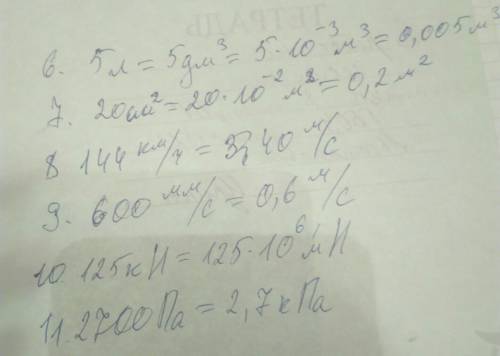 6. 5л = 5дм³ = 5·10⁻³ м³ = 0,005 м³
7. 20дм² = 20·10⁻² м² = 0,2 м²
8 144 км/ч = 40 м/с
9. 600 мм/с = 0,6 м/с
10. 125кН = 125·10⁶ мН
11. 2700Па = 2,7кПа